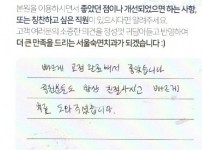 본원을 이용하시면서 좋았던 점이나 개선되었으면 하는 사항,
또는 칭찬하고 싶은 직원이 있으시다면 알려주세요.
고객 여러분의 소중한 의견을 정성껏 귀담아듣고 반영하여
더 큰 만족을 드리는 서울숲면치과가 되겠습니다 :)
빠르게 상담 진료해서 좋았습니다
직원분들도 항상 친절하시고 빠르게
도와주셨습니다.